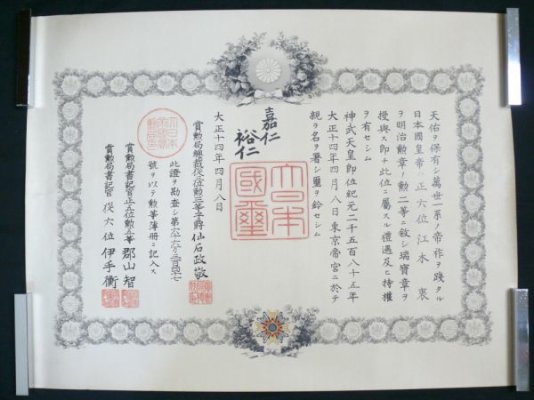 天佑ヲ保有シ萬世一系ノ帝祚ヲ踐タル
日本國皇帝ハ正六位江木衷
ヲ明治勲章ノ勲二等ニ敘シ瑞寶章ヲ
授與ス即チ此位ニ屬スル禮遇及ヒ特權
ヲ有セシム
神武天皇即位紀元二千五百八十五年
大正十四年四月八日東京帝宮ニ於テ
親ラ名ヲ署シ璽ヲ鈐セシム
嘉仁
裕仁
大日本國璽
大正十四年四月八日
賞勲局總裁從三位勲二等子爵仙石政敬
此證ヲ勘査シ第
號ヲ以テ勲等簿冊ニ記入ス
賞勲局書記官正五位勲五等 郡山智
賞勲局書記官從六位 伊手衡